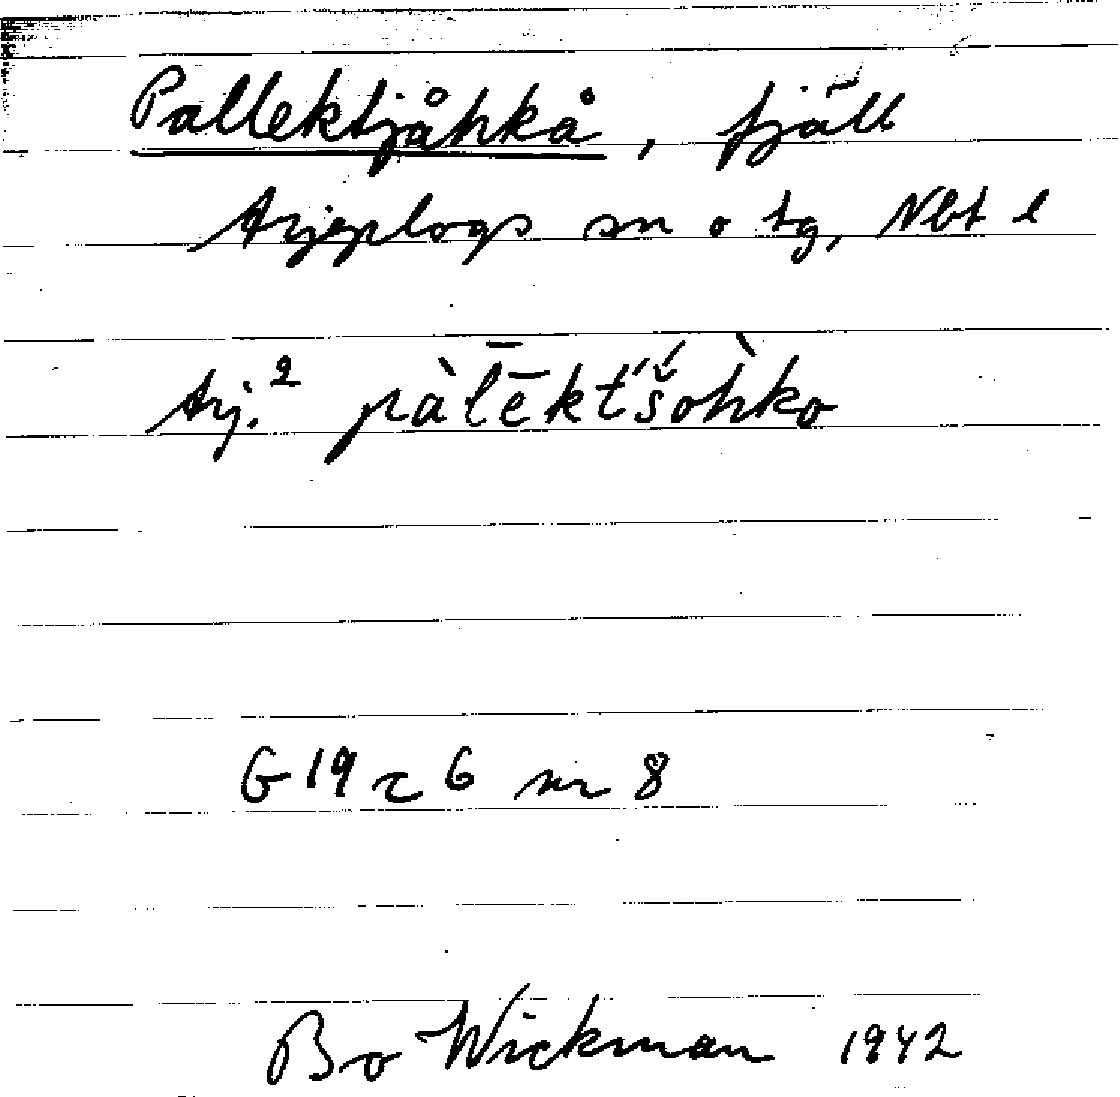 Pallektjåhkå, fjäll
Arjeplogs sn o tg, Nbt l
Arj.² pàl̄ēkt́š́ oh̀ko
G 19 c 6 nr 8
Bo Wickman 1942